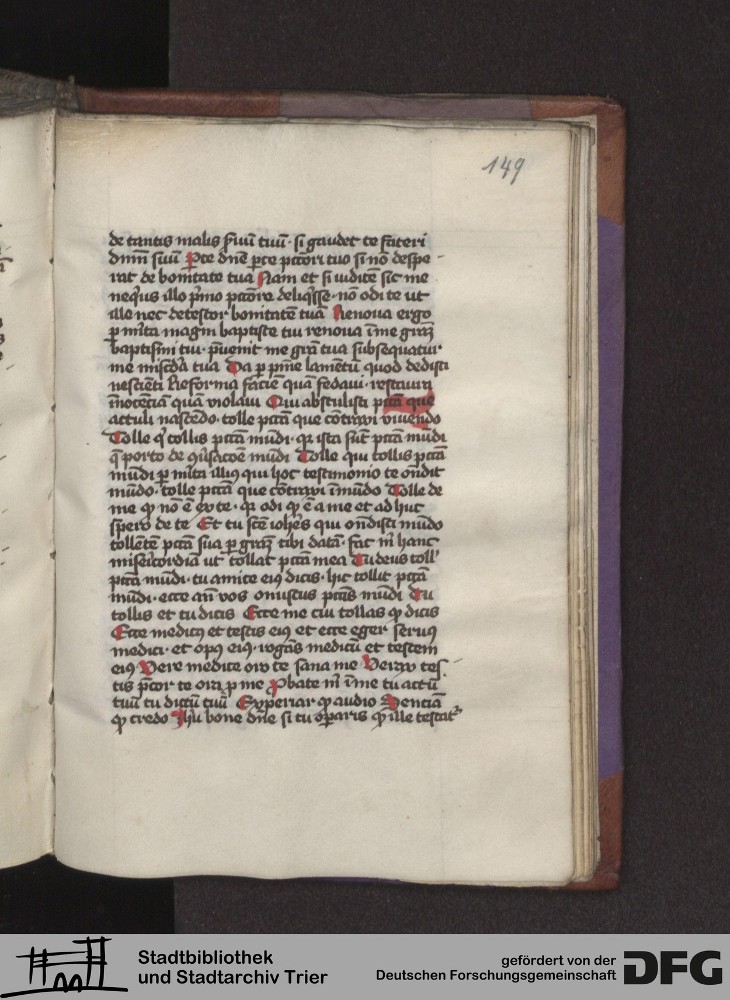 149
de tantis malis s̄uū tuū · si gaudet te fateri
dnm̄ suū Pte dn̄e ꝑce pctōri tuo si nō despe-
rat de bonitate tua Nam et si iuditē sic me
neqͥus illo pͥmo pctōre deliqͥsse · nō odi te ut
ille nec detestor bonitatem̄ tuā Renoua ergo
ꝑ mīta magni baptiste tui renoua ī me grāȝ
baptismi tui · p̄uenit me grā tua subsequatur
me miscd̓ia tua Da ꝑ pn̄ie lamētū quod dedisti
nesciēti Reforma faciē quā fedaui · restaura
īnocētiā quā violaui Qui abstulisti pctā que
actuli nascēdo · tolle pctā que cōtraxi viuendo
Tolle qͥ tollis pctā mūdi · qꝛ ista sūt pctā mūdi
q̄ porto de ꝯūsacōe mūdi Tolle qui tollis pctā
mūdi ꝑ mīta illiꝰ qui hoc testimonio te on̄dit
mūdo · tolle pctā que cōtraxi ī mūdo Tolle de
me qͩ nō ē ex te · qꝛ odi qͩ ē a me et ad huc
spero de te Et tu scē ioh̄es qui on̄disti mūdo
tollētē pctā sua ꝑ grāȝ tibi datā · fac m̄ hanc
misericordiā ut tollat pctā mea Tu deus toll'
pctā mūdi · tu amice eiꝰ dicis · hic tollit pctā
mūdi · ecce an̄ vos onustus pctīs mūdi Tu
tollis et tu dicis Ecce me cui tollas qͩ dicis
Ecce medicꝰ et testis eiꝰ et ecce eger seruꝰ
medici · et opꝰ eiꝰ · rogās medicū et testem
eiꝰ Vere medice oro te sana me Verax tes-
tis pͥcor te ora ꝓ me Probate m̄ ī me tu actū
tuū tu dictū tuū Experiar qͩ audio Senciā
qͩ credo Ihū bone dn̄e si tu oꝑaris qͩ ille testat͛
Stadtbibliothek
und Stadtarchiv Trier
gefördert von der
Deutschen Forschungsgemeinschaft
DFG